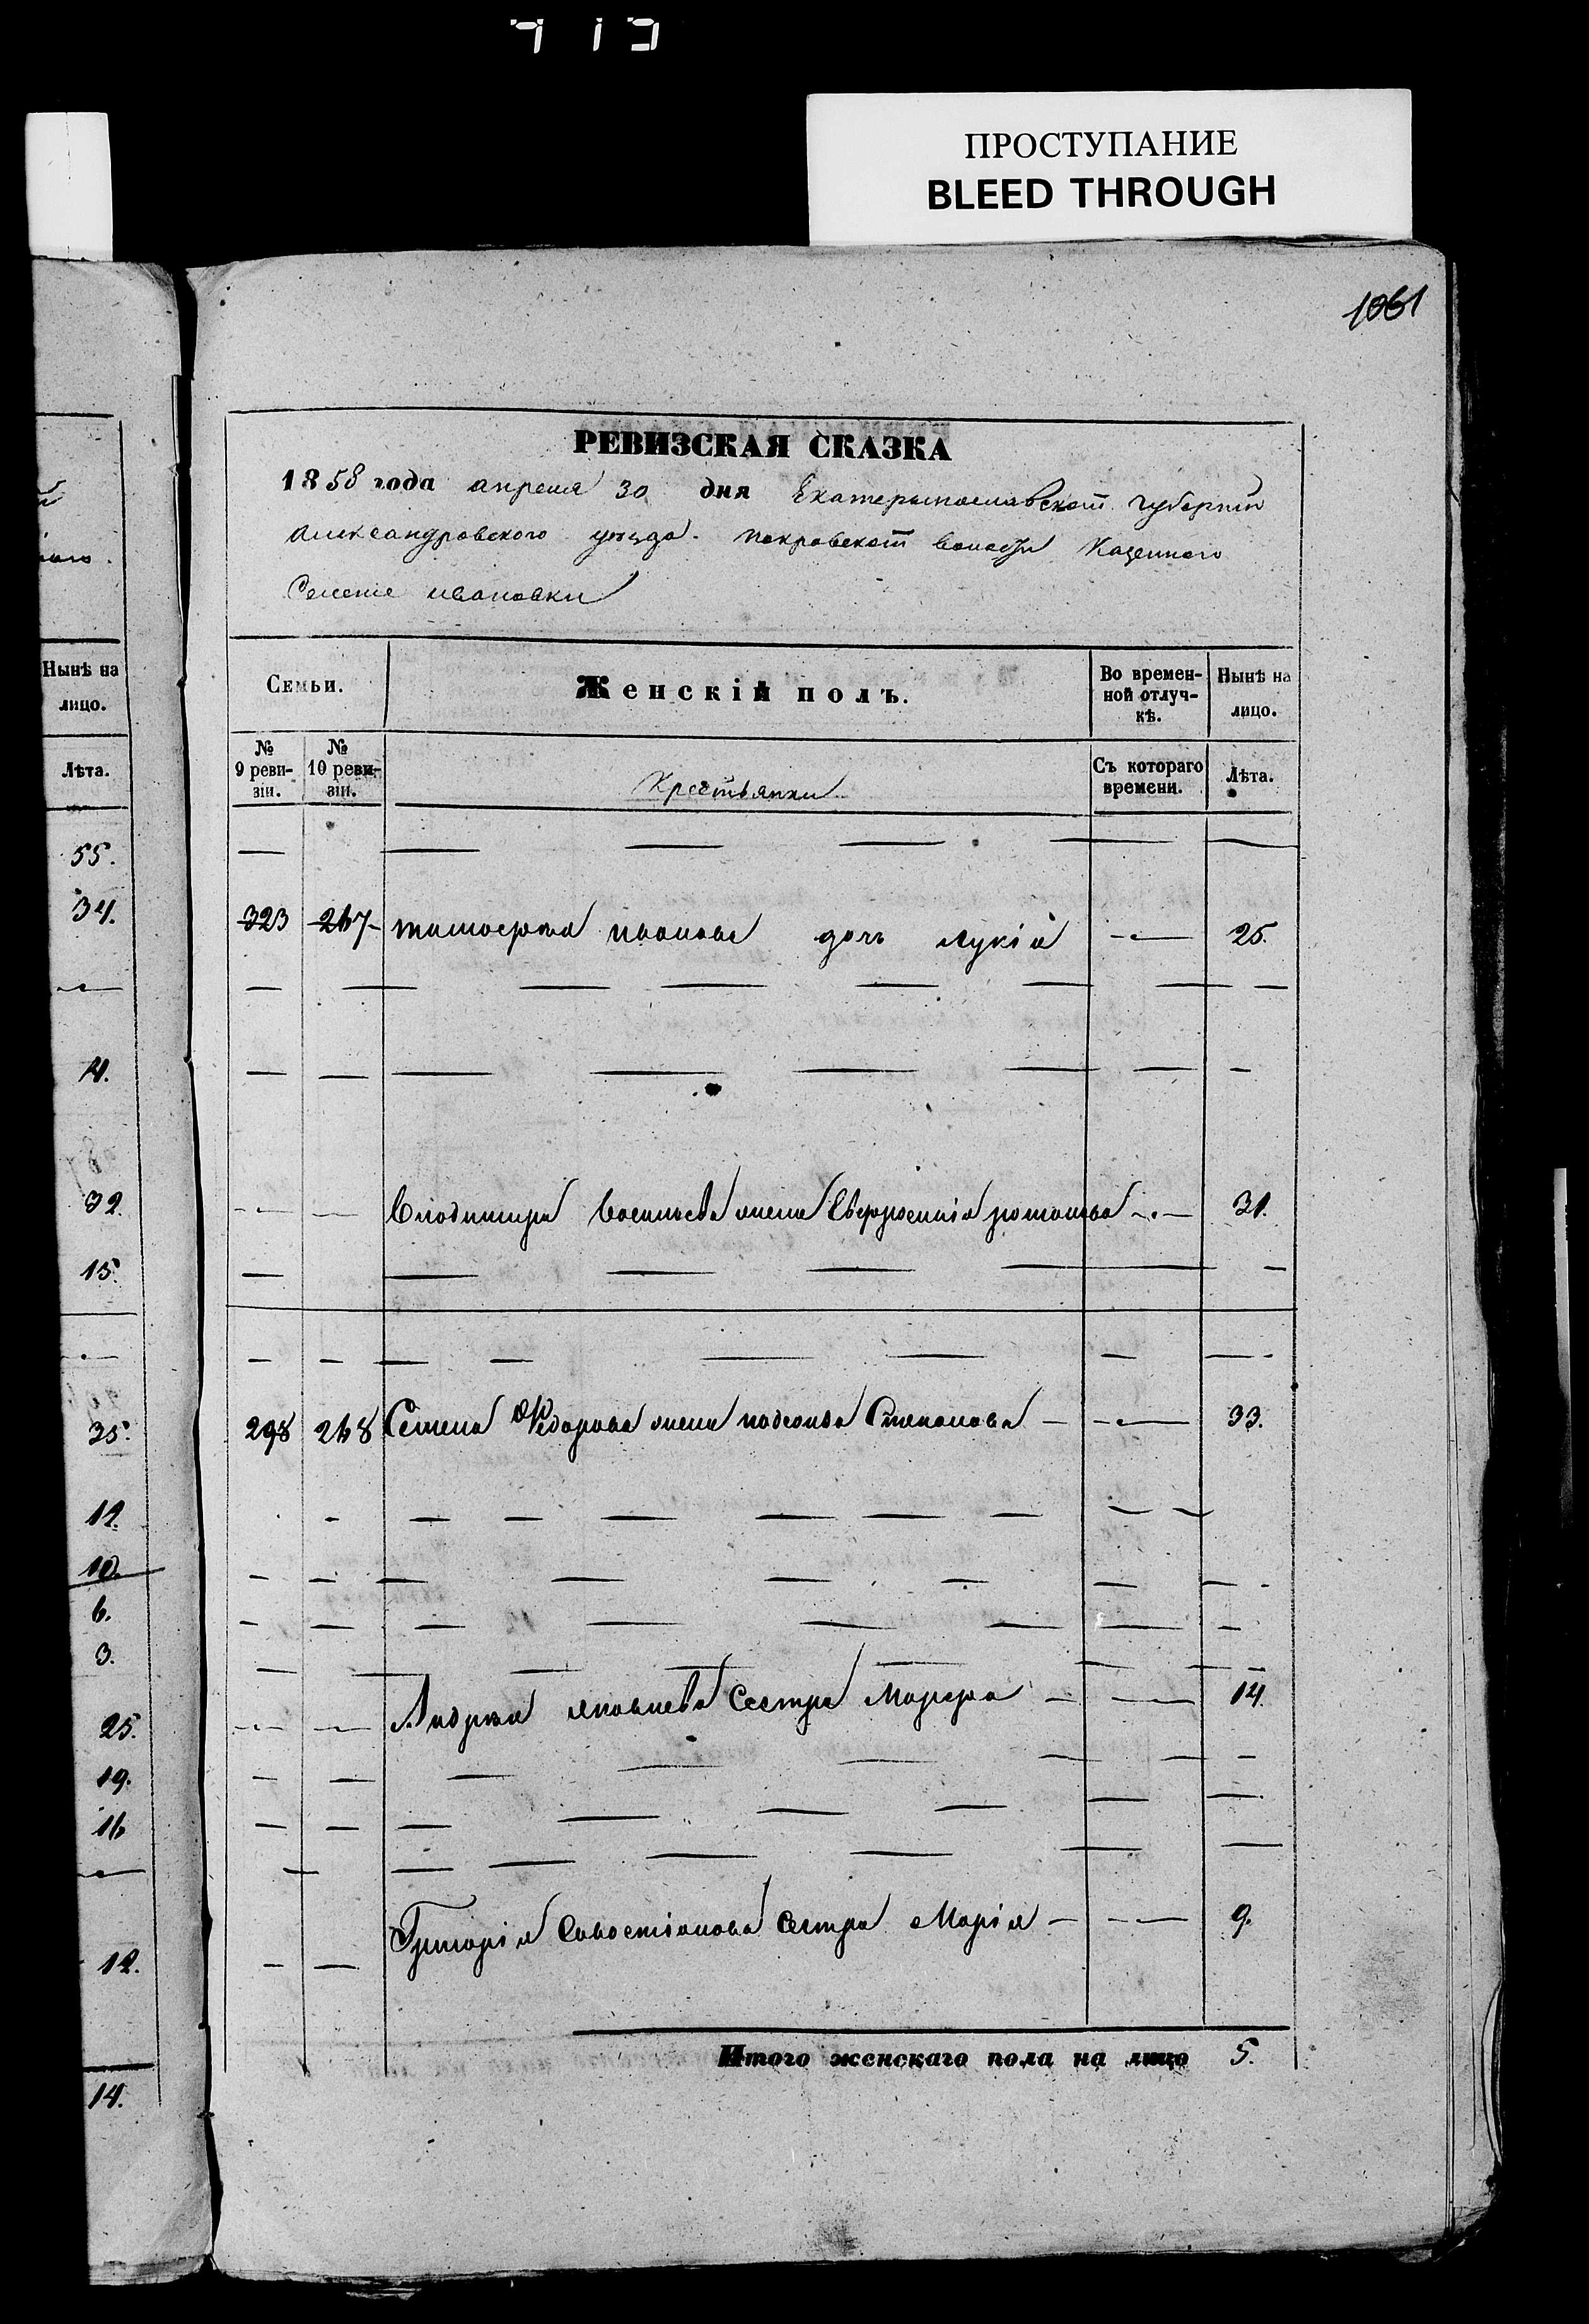 ПРОСТУПАНИЕ
BLEED THROUGH
1061
РЕВИЗСКАЯ СКАЗКА
1858 года апреля 30 дня Екатеринославской губернии
Александровского уѣзда Покровской волости Казенного
Селенiе Ивановки
Нынѣ на
лицо.
Лѣта.
55.
34.
32.
15.
35.
12.
10.
6.
3.
25.
19.
16
12.
14.
Семьи.
Женскій полъ.
Во времен-
ной отлуч-
кѣ.
Нынѣ на
лицо.
№
9 реви-
зіи.
№
10 реви-
зіи.
Крестьянки
Съ котораго
времени.
Лѣта.
323 267 Тимофея Иванова дочь Лукія 25.
Владимира Васильева жена Евфросинія 31.
298 268 Семена Федорова жена Степанова 33.
Андрея Яковлева Сестра Марфа 14.
Григорія Савостіанова Сестра Марія 9.
Итого женскаго пола на лицо 5.